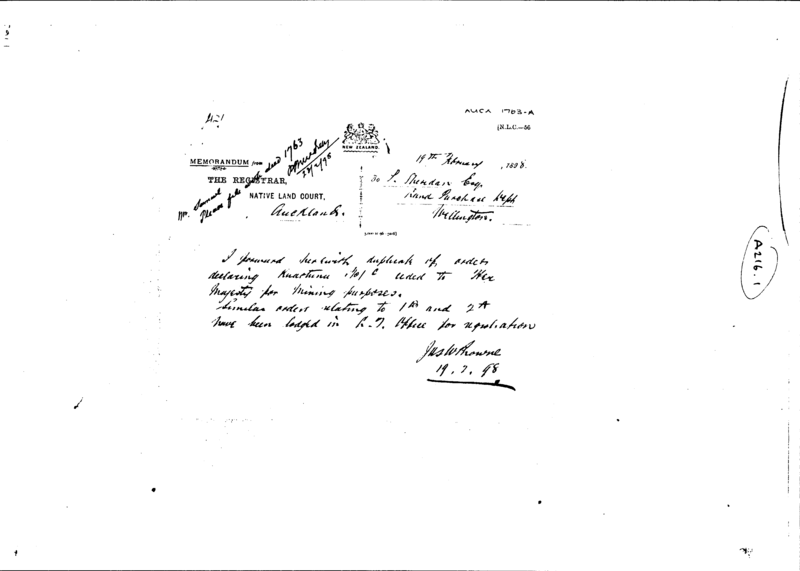 AUCA 1703-A
[N.L.C.—56
NEW ZEALAND.
MEMORANDUM from
THE REGISTRAR,
NATIVE LAND COURT,
Auckland.
Please file with deed 1763
19th February, 1898.
To P. Sheridan Esq.
Land Purchase Dept
Wellington.
I forward herewith duplicate of orders
declaring Kuaotunu No 1C ceded to Her
Majesty for Mining purposes.
Similar orders relating to and 2A
have been lodged in L.T. Office for registration
Jas W Browne
19. 2. 98
A216.1